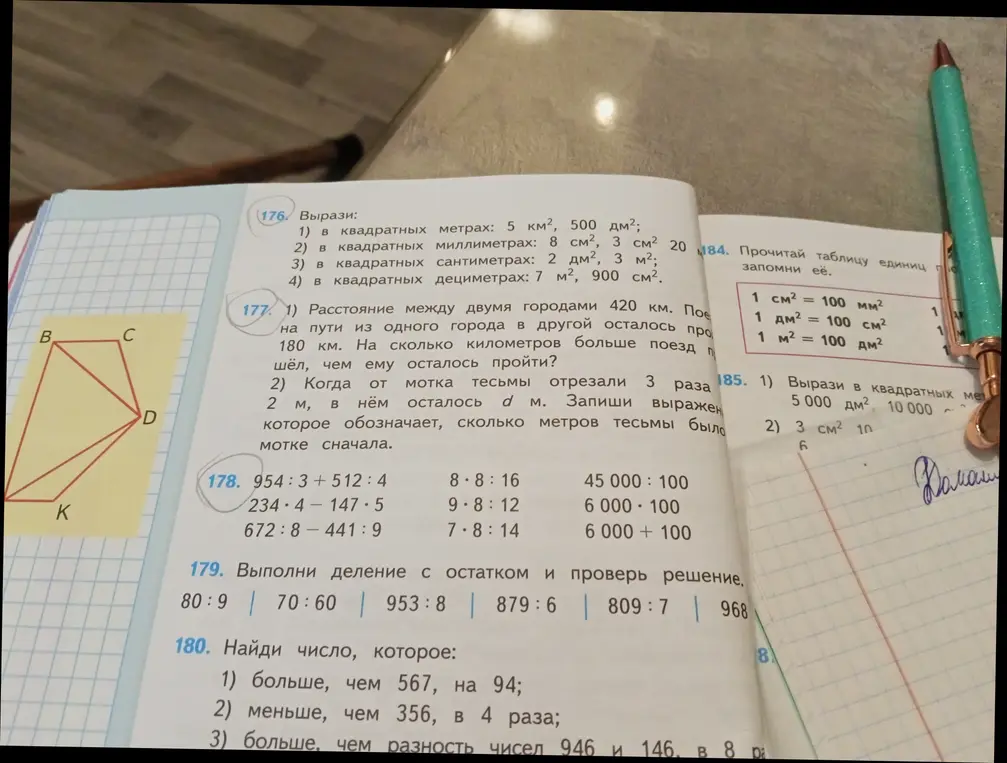 176. Вырази:
1) в квадратных метрах: 5 км², 500 дм²;
2) в квадратных миллиметрах: 8 см², 3 см² 20
3) в квадратных сантиметрах: 2 дм², 3 м²;
4) в квадратных дециметрах: 7 м², 900 см².
177. 1) Расстояние между двумя городами 420 км.
на пути из одного города в другой осталось
180 км. На сколько километров больше поезд
шёл, чем ему осталось пройти?
2) Когда от мотка тесьмы отрезали 3 раза
2 м, в нём осталось d м. Запиши
которое обозначает, сколько метров тесьмы было
мотке сначала.
178. 954 : 3 + 512 : 4 8 · 8 : 16 45 000 : 100
234 · 4 − 147 · 5 9 · 8 : 12 6 000 · 100
672 : 8 − 441 : 9 7 · 8 : 14 6 000 + 100
179. Выполни деление с остатком и проверь решение.
80 : 9 70 : 60 953 : 8 879 : 6 809 : 7 968
180. Найди число, которое:
1) больше, чем 567, на 94;
2) меньше, чем 356, в 4 раза;
3) больше, чем разность чисел 946 и 146, в 8
B
C
D
K
184. Прочитай таблицу единиц
запомни её.
1 см² = 100 мм² 1
1 дм² = 100 см² 1
1 м² = 100 дм² 1
185. 1) Вырази в квадратных
5 000 дм², 10 000
2) 3 см² 10
6
8.